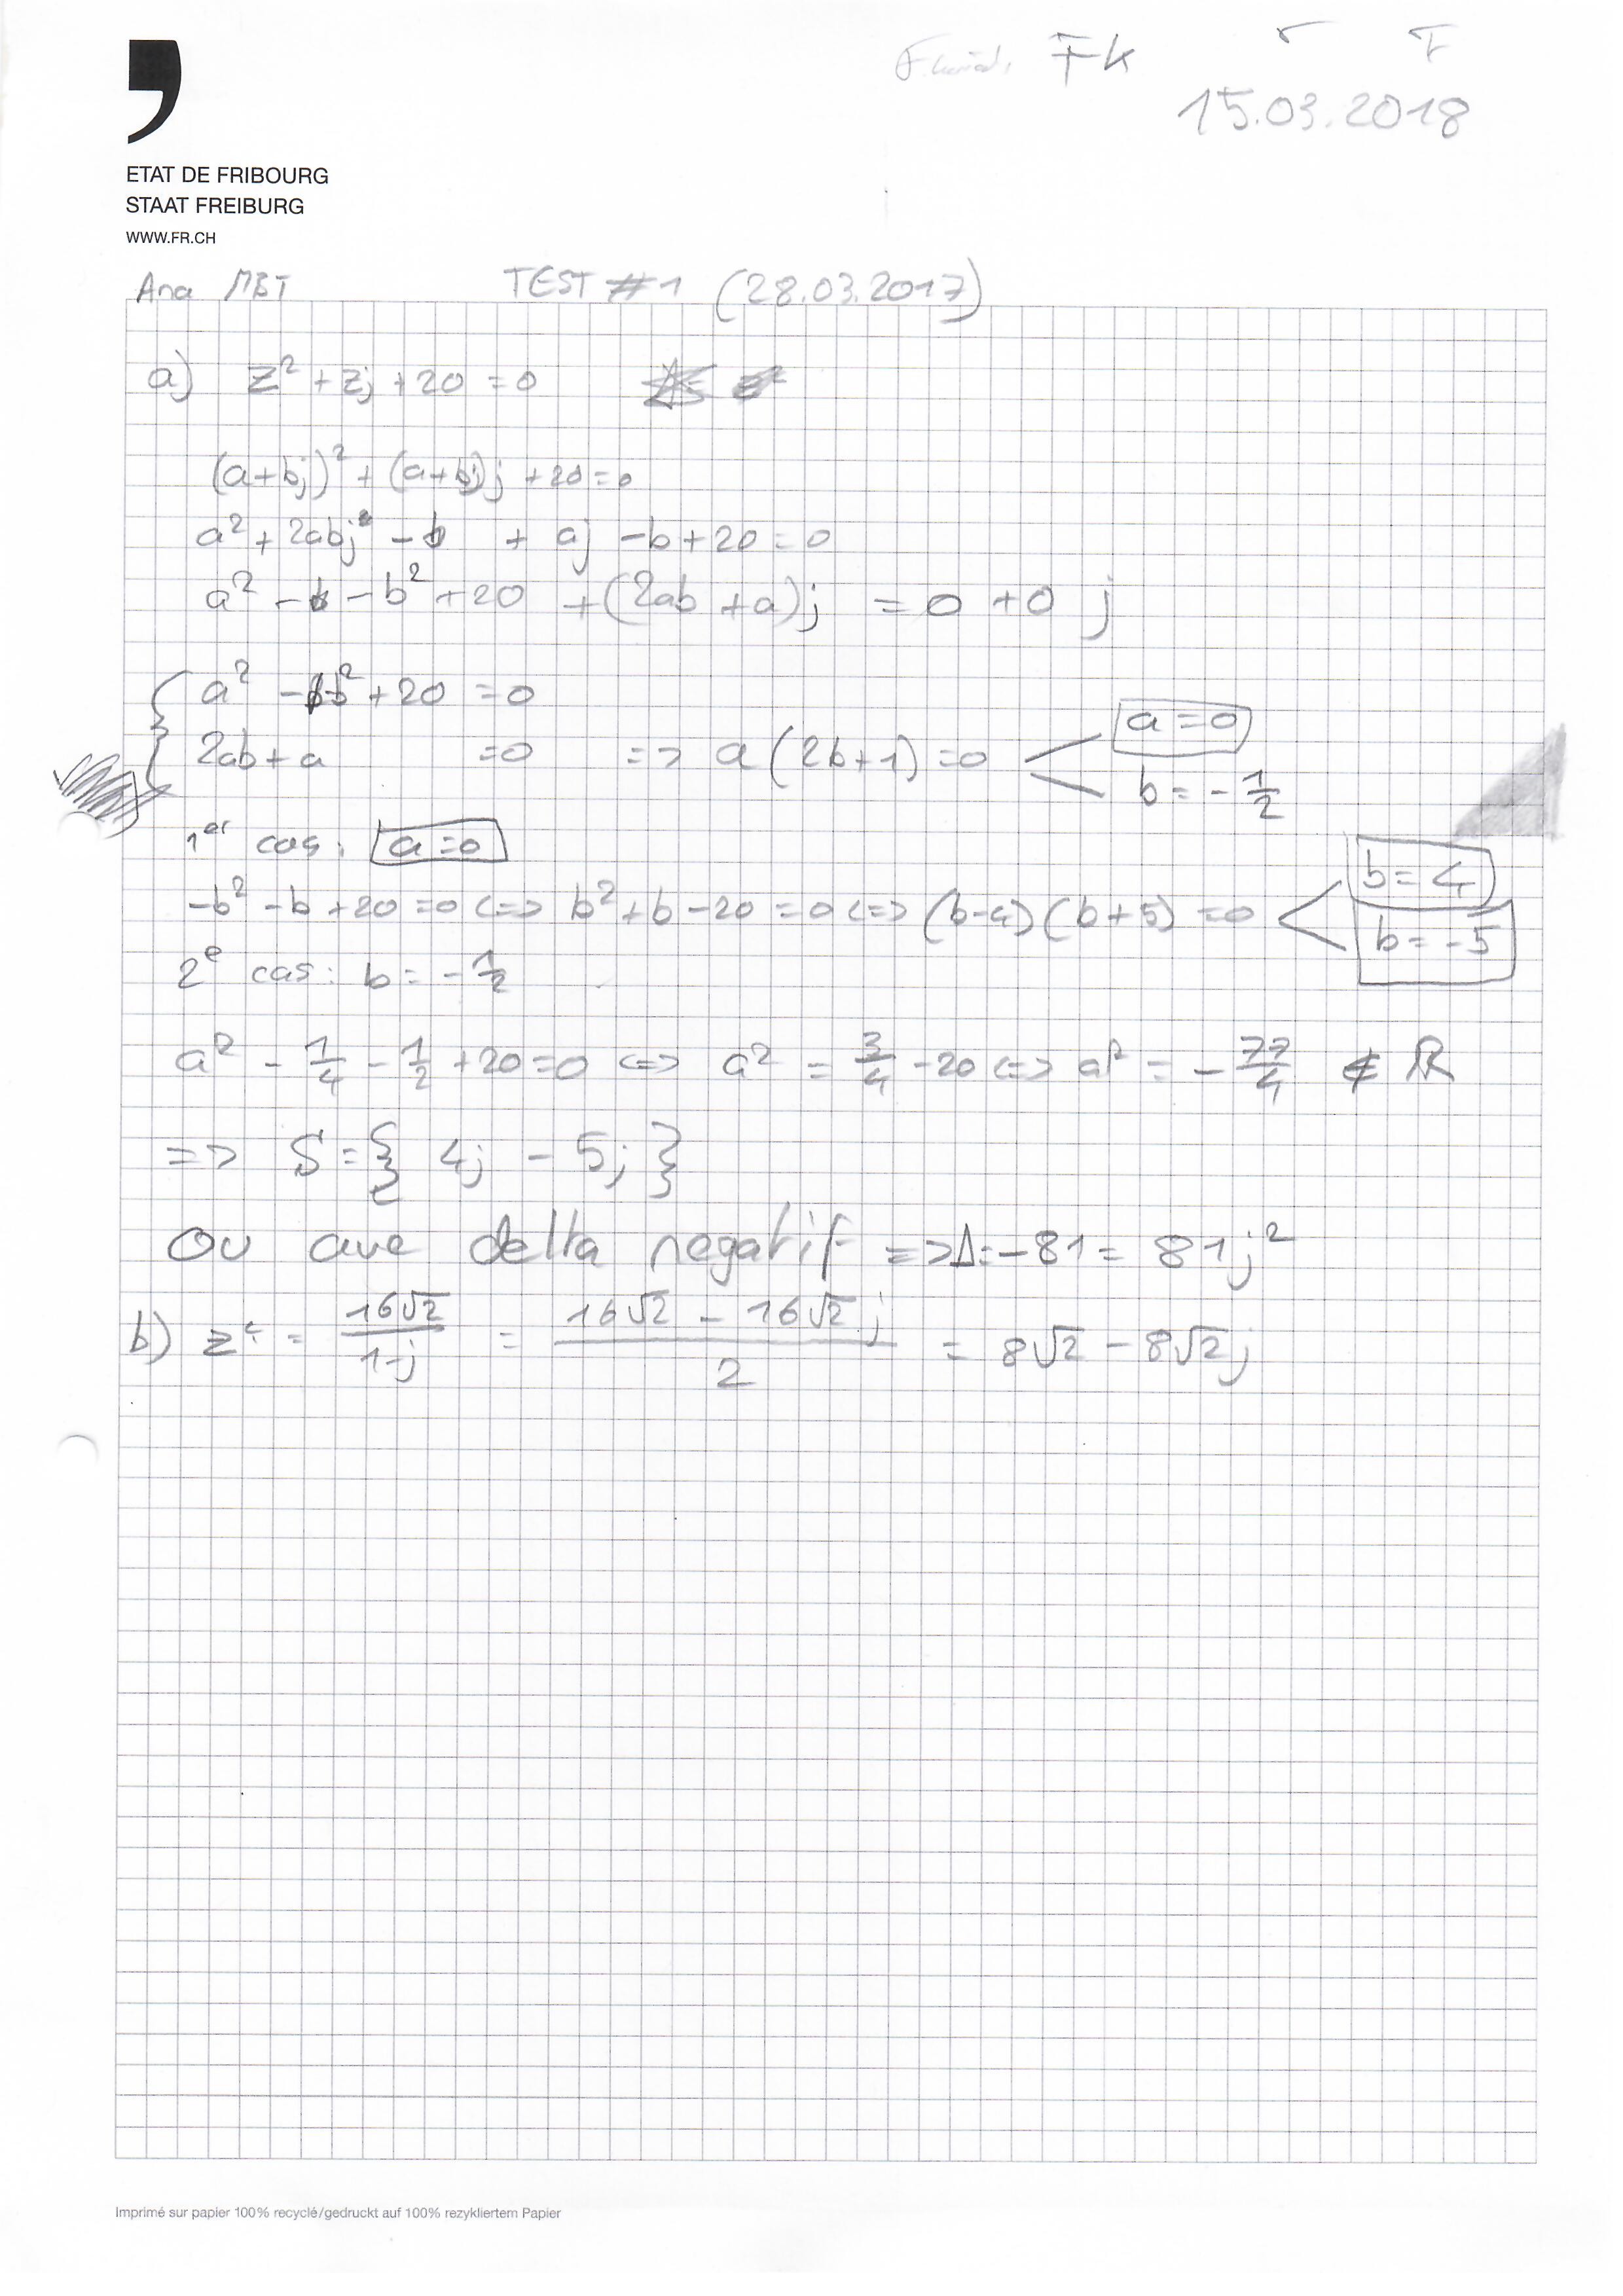 FK
15.03.2018
ETAT DE FRIBOURG
STAAT FREIBURG
WWW.FR.CH
Ana MBT TEST #1 (28.03.2017)
a) z² + zj + 20 = 0
(a+bj)² + (a+bj)j + 20 = 0
a² + 2abj - b + aj - b + 20 = 0
a² - b - b² + 20 + (2ab + a)j = 0 + 0 j
a² - b - b² + 20 = 0
2ab + a = 0 => a (2b+1) = 0 a = 0
b = - 1/2
1er cas: a = 0
-b² - b + 20 = 0 <=> b² + b - 20 = 0 <=> (b-4)(b+5) = 0 b = 4
b = -5
2e cas: b = - 1/2
a² - 1/4 - 1/2 + 20 = 0 <=> a² = 3/4 - 20 <=> a² = - 77/4 ∉ ℝ
=> S = { 4j - 5j }
Ou ave delta negatif => Δ = -81 = 81j²
b) z⁴ = 16√2 / 1-j = 16√2 - 16√2 j / 2 = 8√2 - 8√2 j
Imprimé sur papier 100% recyclé/gedruckt auf 100% rezykliertem Papier